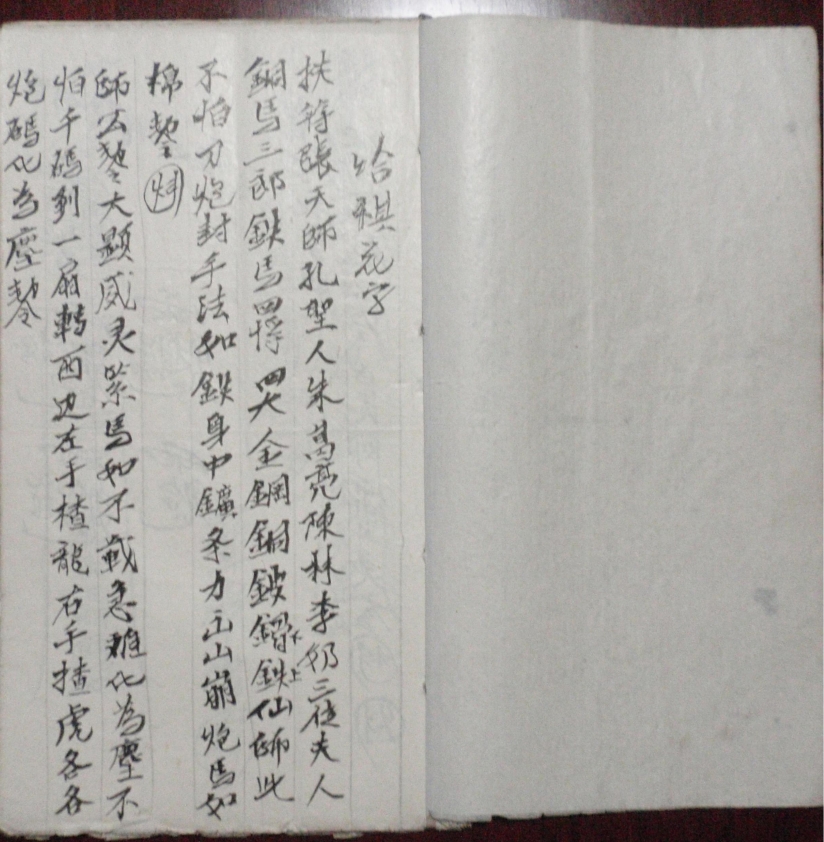 给祺花字
扶得張天師孔聖人朱萵亮陳林李奶三位夫人
銅馬三郎鉄馬四将四大金鋼銅鈹鐂下鉄上仙師此
不怕刀炮封手法如鉄身中鑛条力玉山崩炮馬如
棉
師公大顕威灵紫馬如不戦急难化為塵不
怕千碼到一扇轉西边左手揸龍右手揸虎各各
炮碼化為塵